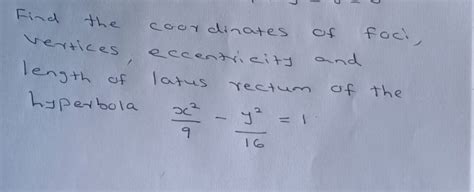 Find the coordinates of foci,
vertices, eccentricity and
length of latus rectum of the
hyperbola x²/9 - y²/16 = 1